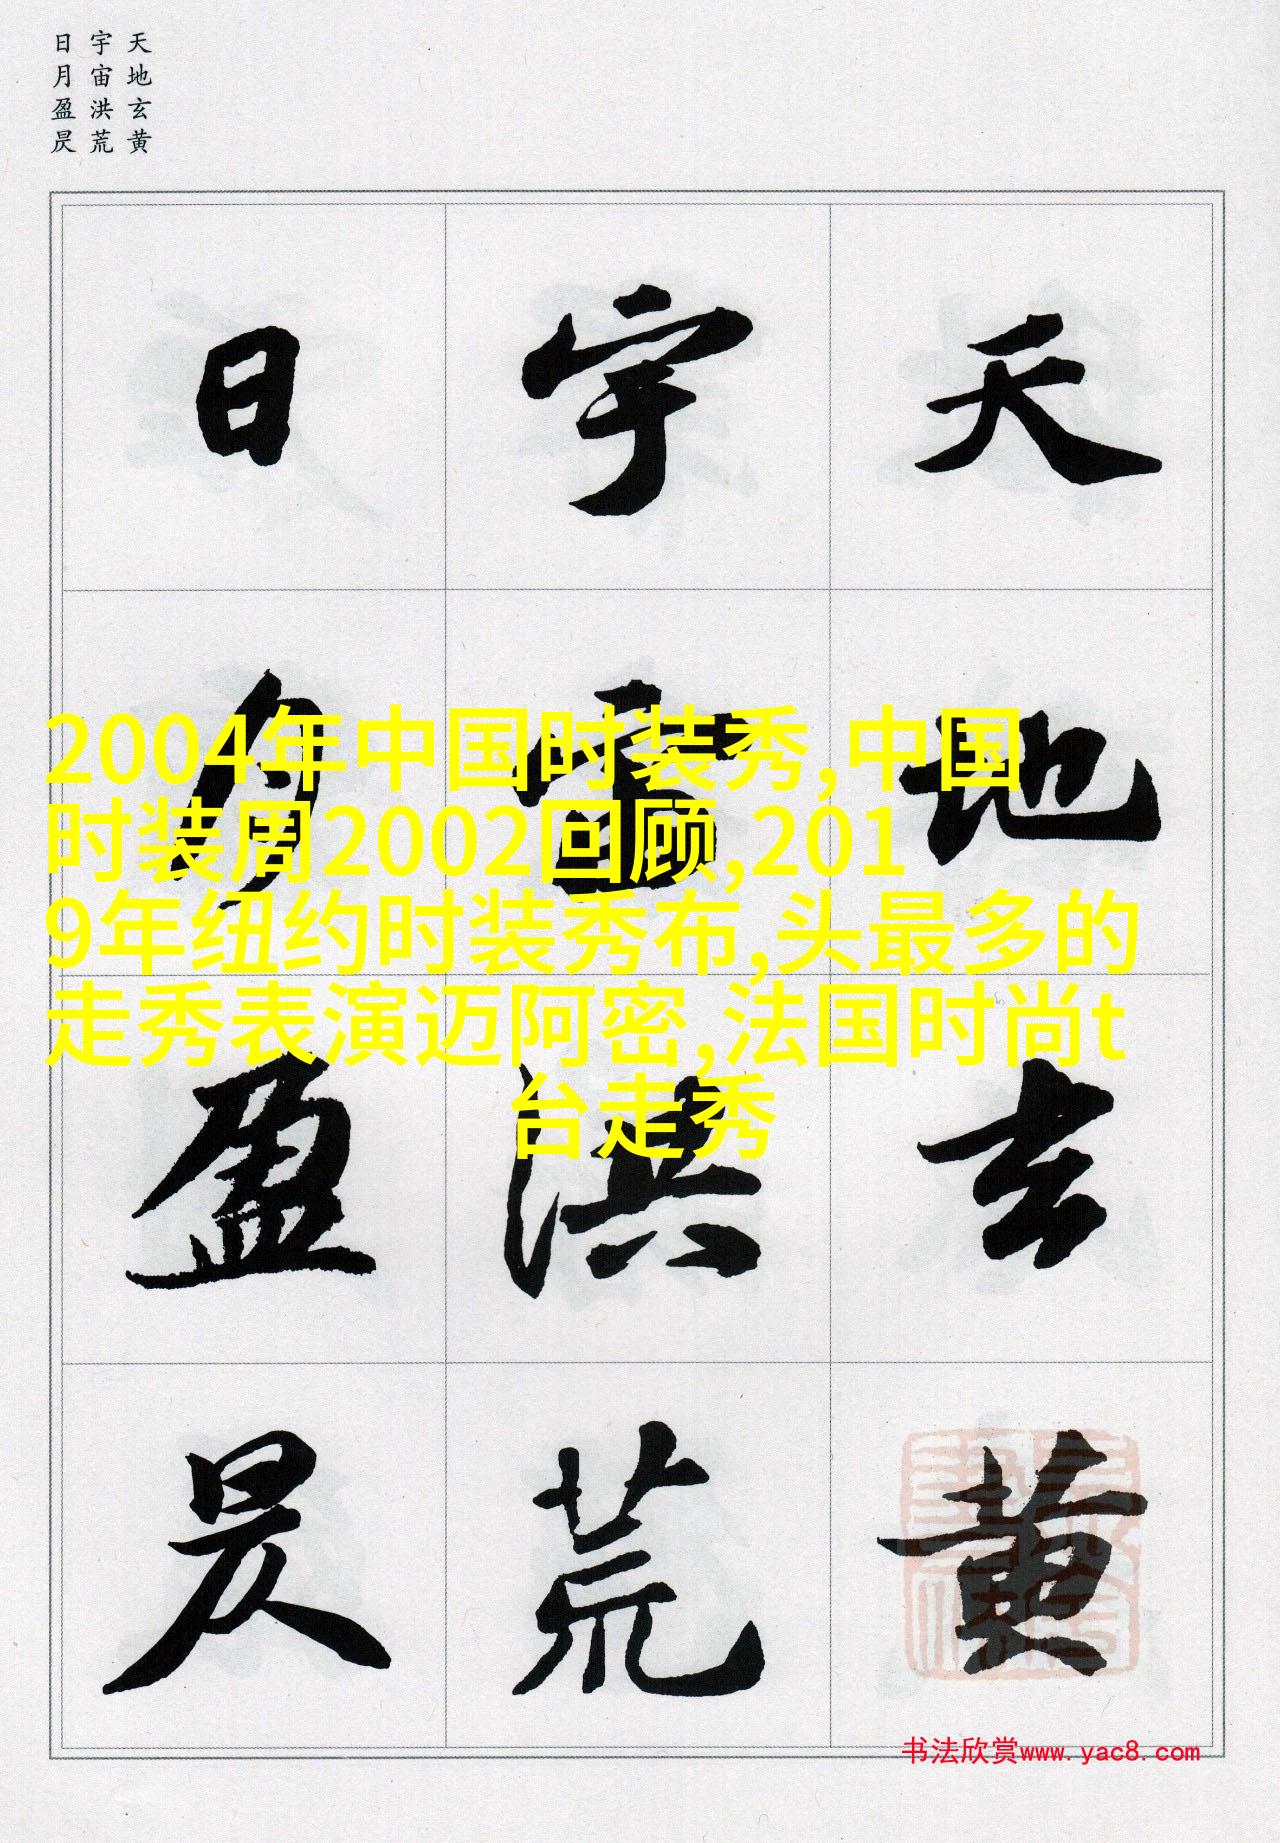 天地玄黄
宇宙洪荒
日月盈昃
天地玄黄
宇宙洪荒
日月盈昃
2004年中国时装秀,中国
时装周2002回顾,201
9年纽约时装秀布,头最多的
走秀表演迈阿密,法国时尚t
台走秀
书法欣赏www.yac8.com